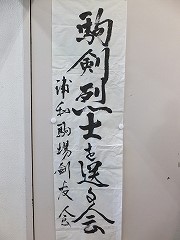 駒剣烈士を送る会
浦和駒場剣友会